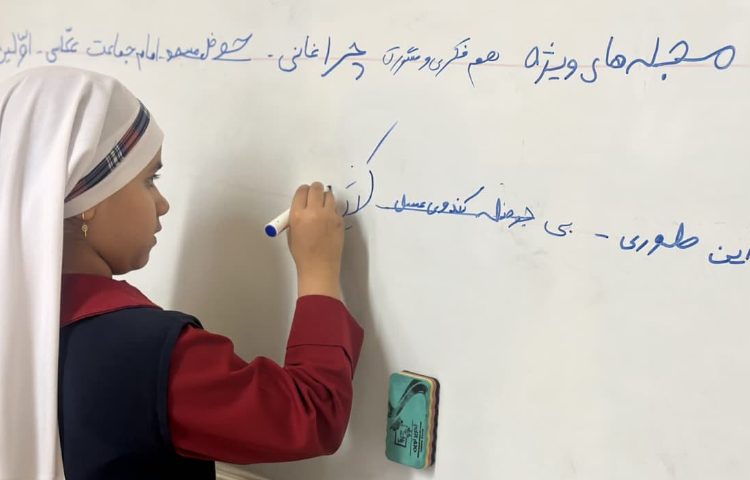 مجله های ویژه هم فکری و چراغانی - خوش مسعود - امام جماعت عملی - اولین
این طوری - بی حوصله کندوی عسل